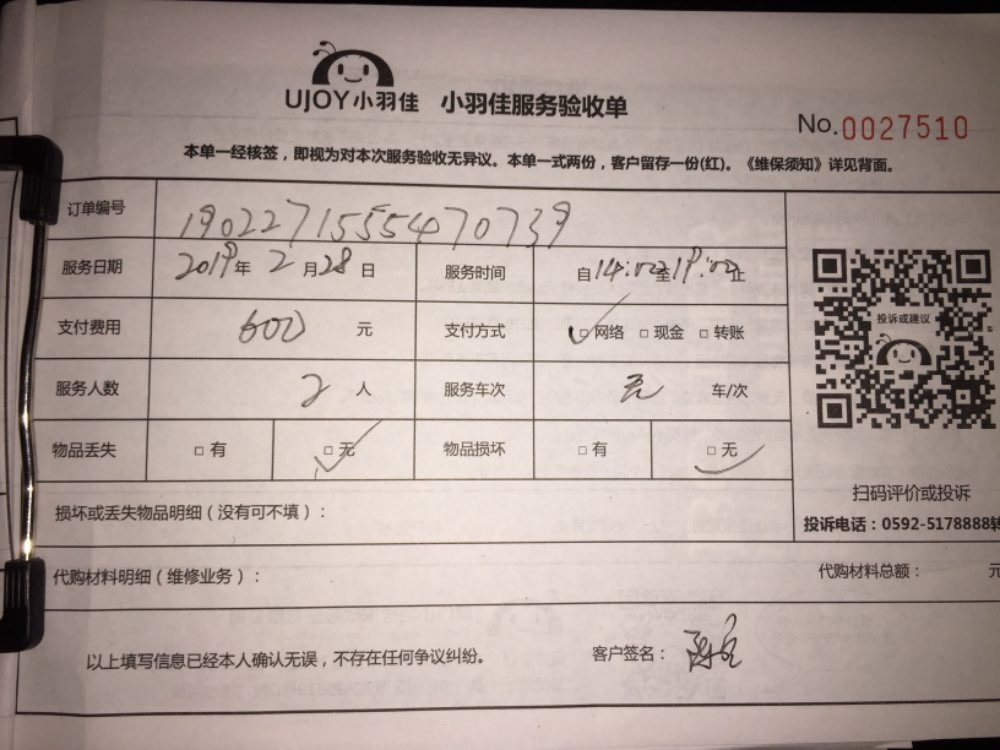 UJOY小羽佳 小羽佳服务验收单
No.0027510
本单一经核签，即视为对本次服务验收无异议。本单一式两份，客户留存一份(红)。《维保须知》详见背面。
订单编号 190227155547 0739
服务日期 2019年 2月28日 服务时间 自14:00至19:00止
支付费用 600 元 支付方式 □网络 □现金 □转账
投诉或建议
服务人数 2 人 服务车次 无 车/次
物品丢失 □有 □无 物品损坏 □有 □无
扫码评价或投诉
损坏或丢失物品明细（没有可不填）：
投诉电话：0592-5178888转
代购材料明细（维修业务）： 代购材料总额： 元
以上填写信息已经本人确认无误，不存在任何争议纠纷。 客户签名：